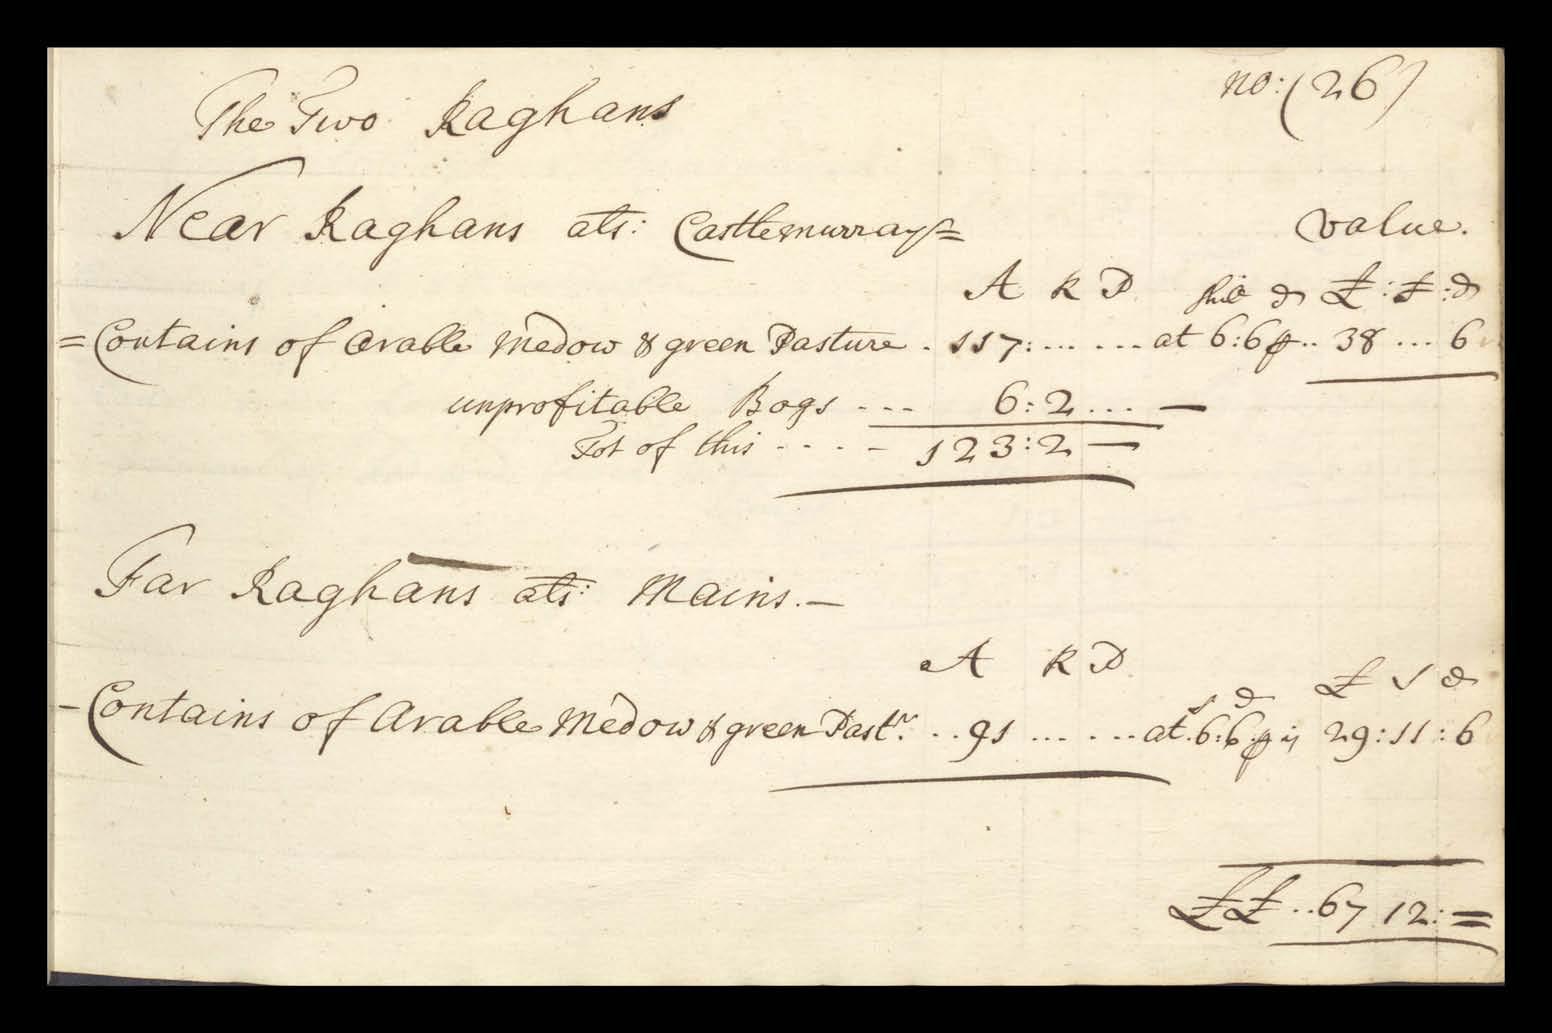 no: (26)
The Two Raghans
Near Raghans ats: Castlemurray=
value.
A R P shil d £ : £ : d
= Contains of Arable Medow & green Pasture . 117: ... ... at 6:6 p .. 38 ... 6
unprofitable Bogs --- 6:2 ... —
Tot of this ---- 123:2 —
Far Raghans ats: Mains. —
A R P s d £ s d
- Contains of Arable Medow & green Pastr. .. 91 ... ... at 6:6 p is 29:11:6
££ .. 67 12: =